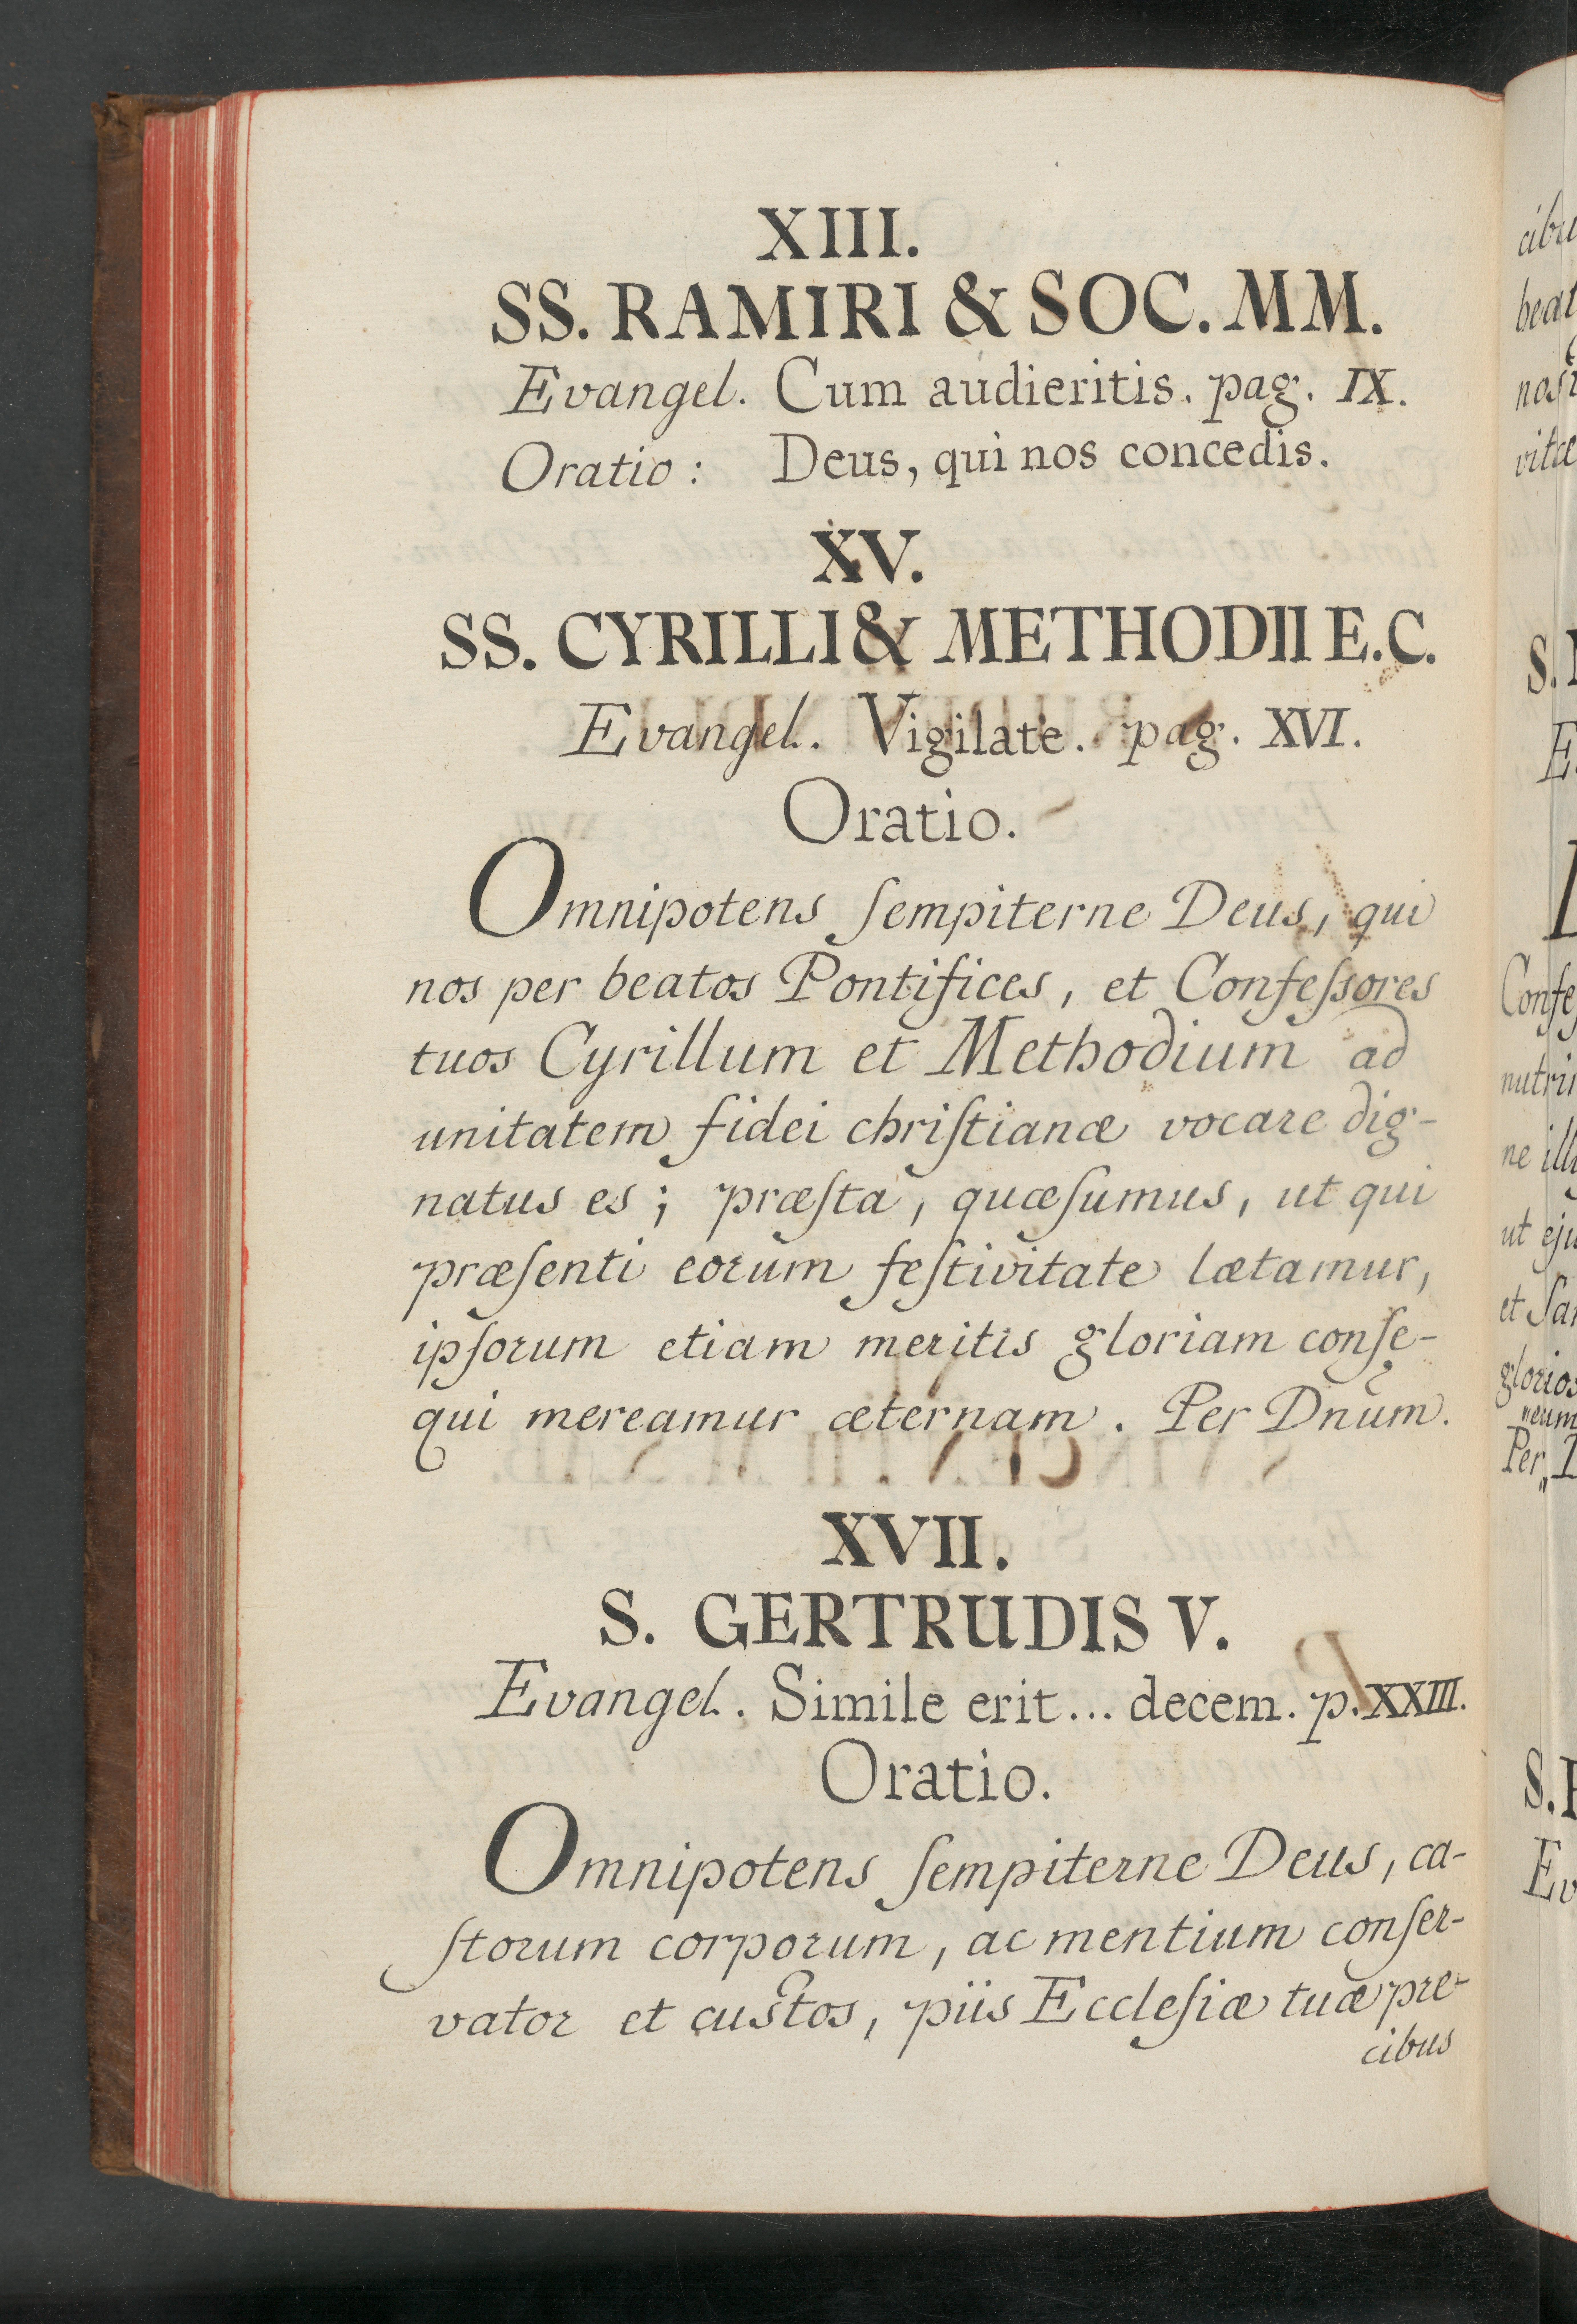 XIII.
SS. RAMIRI & SOC. MM.
Evangel. Cum audieritis. pag. IX.
Oratio: Deus, qui nos concedis.
XV.
SS. CYRILLI & METHODII E.C.
Evangel. Vigilate. pag. XVI.
Oratio.
Omnipotens ſempiterne Deus, qui
nos per beatos Pontifices, et Confeſsores
tuos Cyrillum et Methodium ad
unitatem fidei chriſtianæ vocare dig-
natus es; præſta, quæſumus, ut qui
præſenti eorum feſtivitate lætamur,
ipſorum etiam meritis gloriam conſe-
qui mereamur æternam. Per Dnum.
XVII.
S. GERTRUDIS V.
Evangel. Simile erit... decem. p. XXIII.
Oratio.
Omnipotens ſempiterne Deus, ca-
ſtorum corporum, ac mentium conſer-
vator et custos, piis Eccleſiæ tuæ pre-
cibus